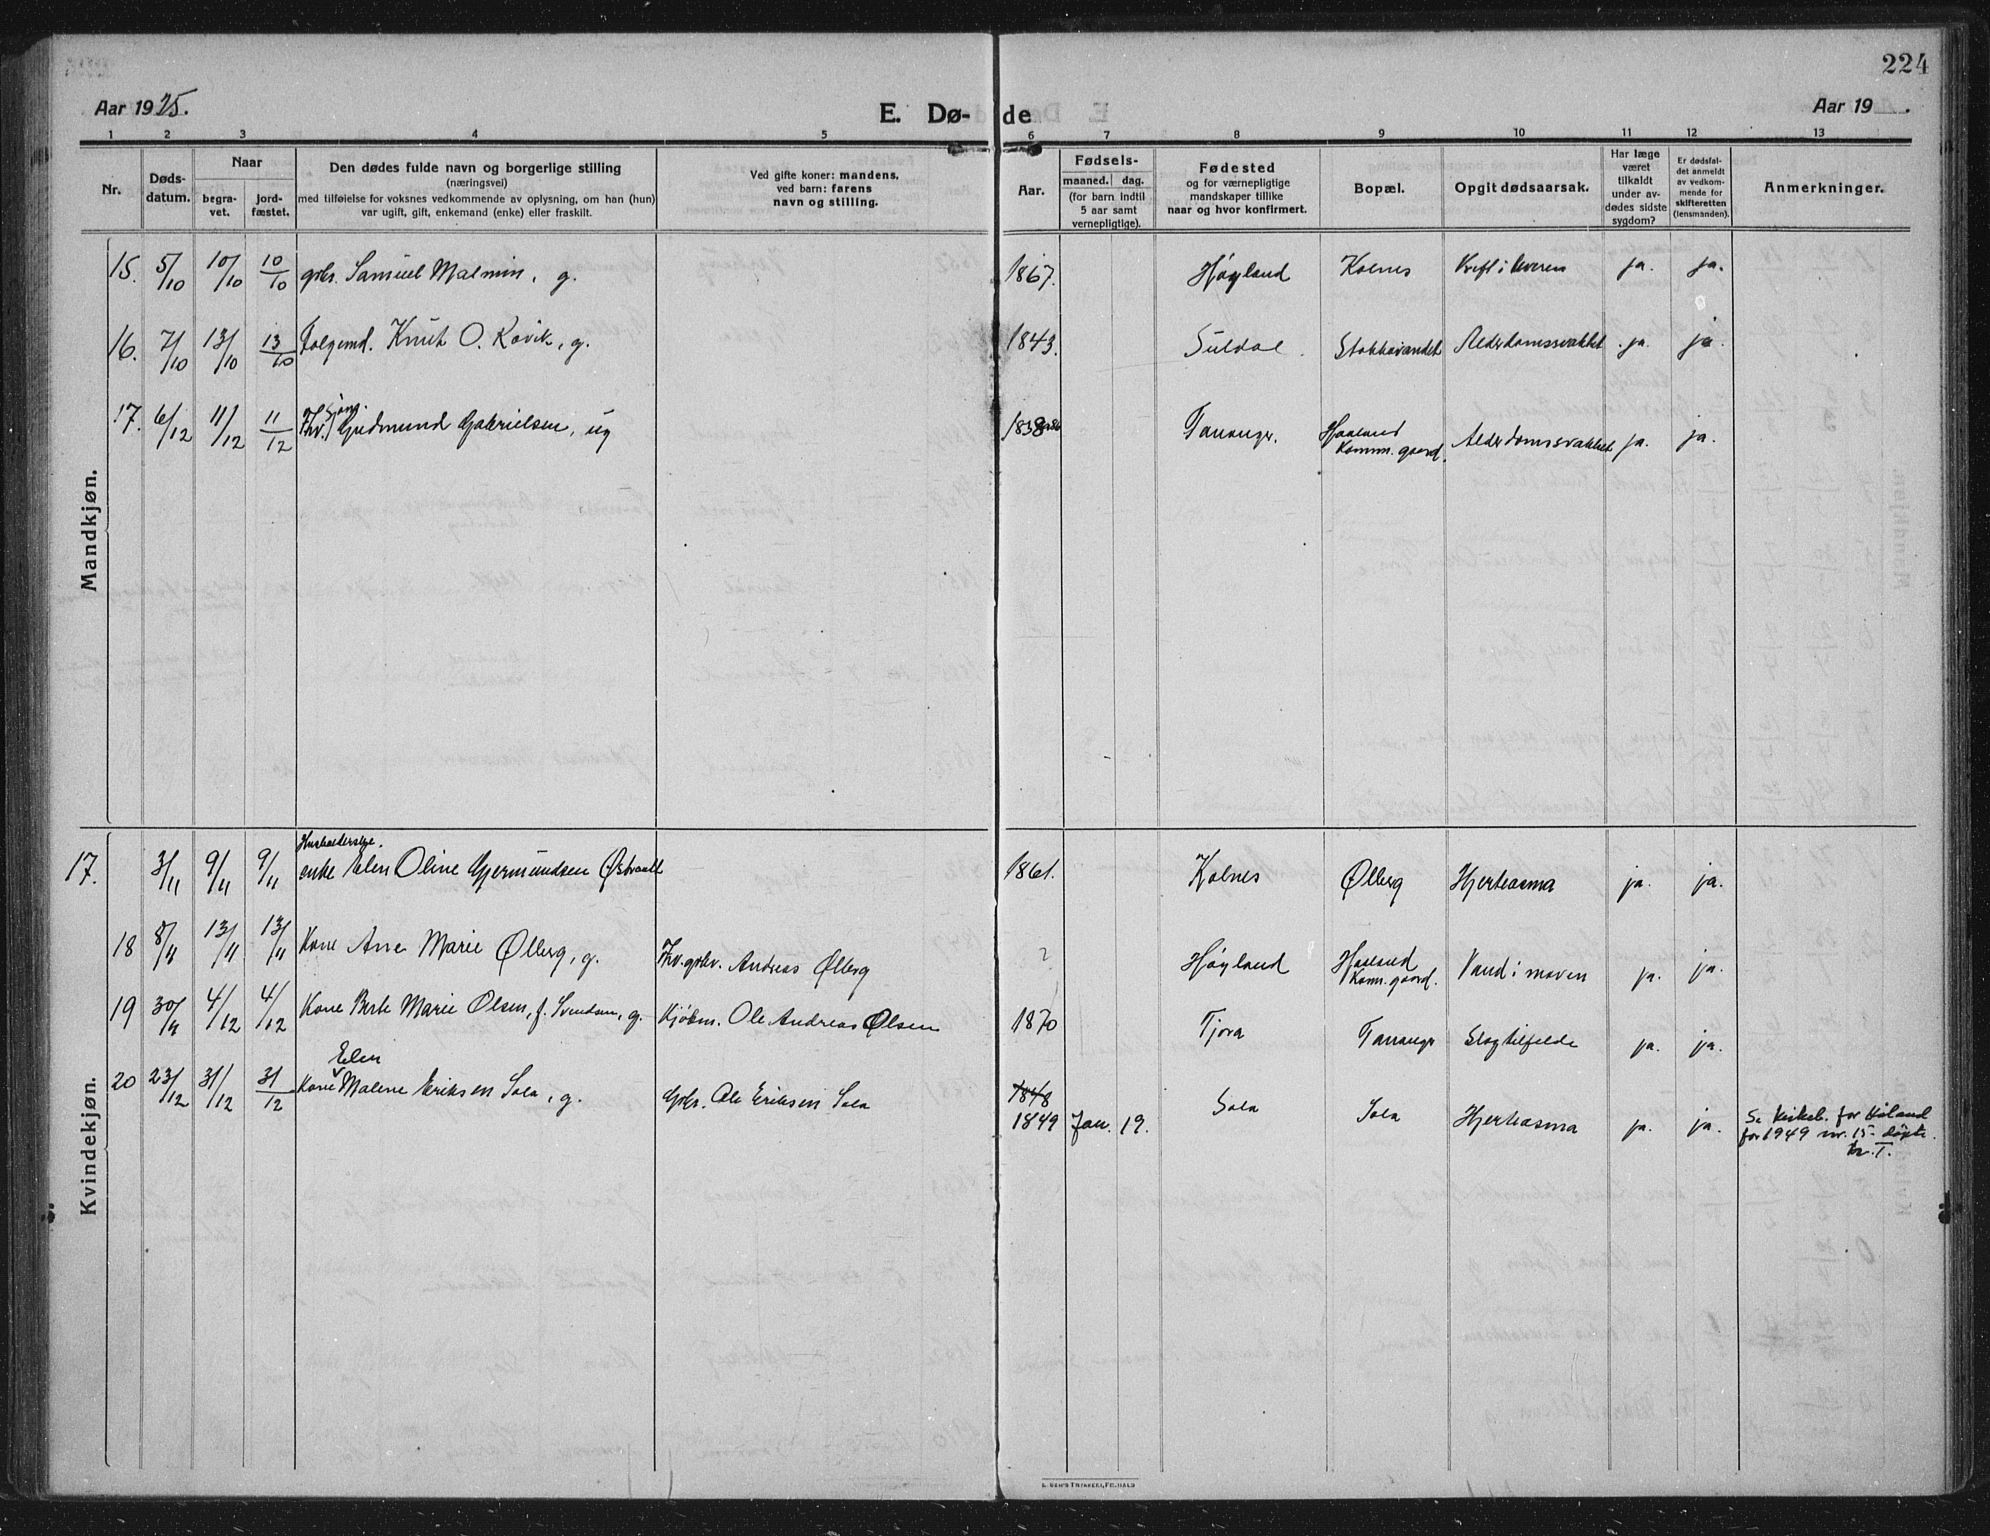 224
Aar 1925.
E. Dø-
de
Aar 19 .
1 2 3 4 5 6 7 8 9 10 11 12 13
Nr.
Døds-
datum.
Naar
begra-
vet.
jord-
fæstet.
Den dødes fulde navn og borgerlige stilling
(næringsvei)
med tilføielse for voksnes vedkommende av oplysning, om han (hun)
var ugift, gift, enkemand (enke) eller fraskilt.
Ved gifte koner: mandens,
ved barn: farens
navn og stilling.
Aar.
Fødsels-
maaned. dag.
(for barn indtil
5 aar samt
vernepligtige).
Fødested
og for værnepligtige
mandskaper tillike
naar og hvor konfirmert.
Bopæl.
Opgit dødsaarsak.
Har læge
været
tilkaldt
under av-
dødes sidste
sygdom?
Er dødsfal-
det anmeldt
av vedkom-
mende for
skifteretten
(lensmanden).
Anmerkninger.
Mandkjøn.
15. 5/10 10/10 10/10 gbr. Samuel Malmin, g. 1867. Høyland Kolnes Kræft i leveren ja. ja.
16. 7/10 13/10 13/10 Folgemd. Knut O. Kovik, g. 1843. Suldal Stokkavandet Alderdomssvakhet ja. ja.
17. 6/12 11/12 11/12 Fhv. Gudmund Gabrielsen, ug 1838 Tananger. Haaland Komm. gaard. Alderdomssvakhet ja. ja.
Kvindekjøn.
Husholderske.
17. 3/11 9/11 9/11 enke Elen Oline Gjermundsen Østraat 1861. Kolnes Ølberg Hjerteasma ja. ja.
18 8/11 13/11 13/11 Kone Ane Marie Ølberg, g. Fhv. gbr. Andreas Ølberg ? Høyland Haaland Komm. gaard. Vand i maven ja. ja.
19 30/11 4/12 4/12 Kone Berte Marie Olsen, f. Svendsen, g. Kjøbm. Ole Andreas Olsen 1870 Tjora Tananger Slagtilfelde ja. ja.
Elen
20 23/12 31/12 31/12 Kone Malene Eriksen Sola, g. Gbr. Ole Eriksen Sola 1848
1849 Jan. 19. Sola Sola Hjerteasma ja. ja. Se kirkeb. for Håland
for 1949 nr. 15 døpte.